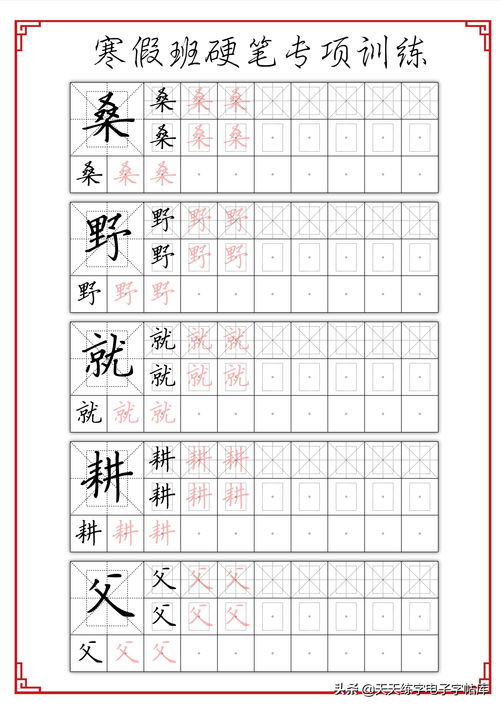 寒假班硬笔专项训练
桑 桑 桑 桑
桑 桑 桑
桑 桑 桑
野 野 野 野
野 野 野
野 野 野
就 就 就 就
就 就 就
就 就 就
耕 耕 耕 耕
耕 耕 耕
耕 耕 耕
父 父 父 父
父 父 父
父 父 父
头条 @天天练字电子字帖库